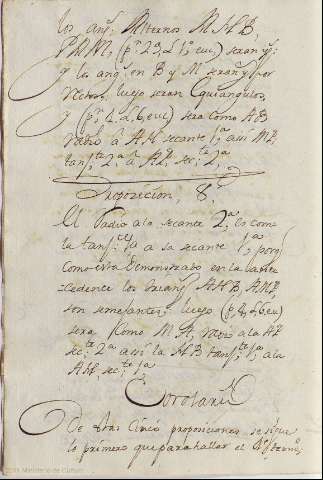 los ang.s Alternos M H B,
P M M, (p.a 29, d 1.o eucl) seran yg.s
y los ang.s en B y M seran yg.s por
rectos, luego seran equiangulos,
y (p.a 4. d 6, eucl) sera como A B
radio â A H secante 1.a assi M P,
tang.te 2.a â A P, sec.te 2.a
Proposicion, 8.a
El Radio ala secante 2.a es como
la tang.te 1.a a la secante 1.a, porq
como esta demonstrado en la ante
cedente los triang.s A H B, A M P,
son semejantes, luego (p. 4, d 6, eu)
sera como M A, radio a la A P
sec.te 2.a assi la H B tang.te 1.a a la
A H sec.te 1.a
Corolario
De stas cinco proposiciones, se sigue
lo primero que para hallar el
Ministerio de Cultura